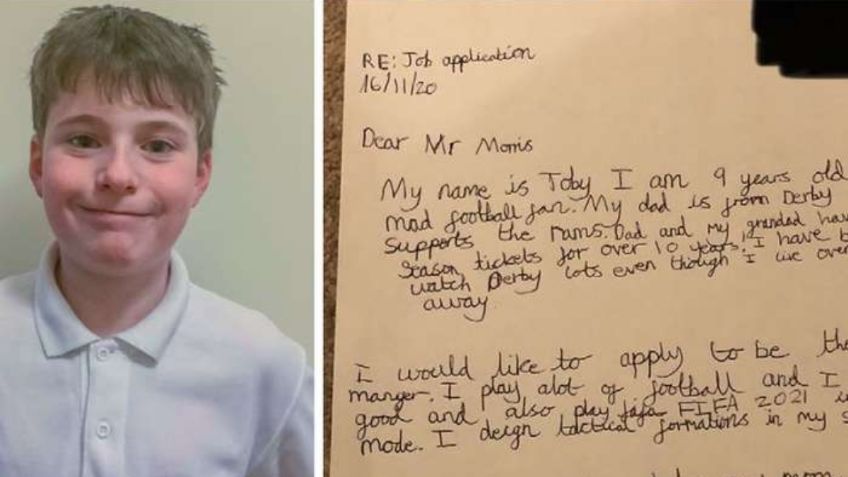 RE: Job application
16/11/20
Dear Mr Morris
My name is Toby I am 9 years old
mad football fan. My dad is from Derby
supports the rams. Dad and my grandad hav
season tickets for over 10 years! I have b
watch Derby lots even though I live over
away
I would like to apply to be the
manger. I play alot of football and I
good and also play fifa FIFA 2021
mode. I deign tactical formations in my s